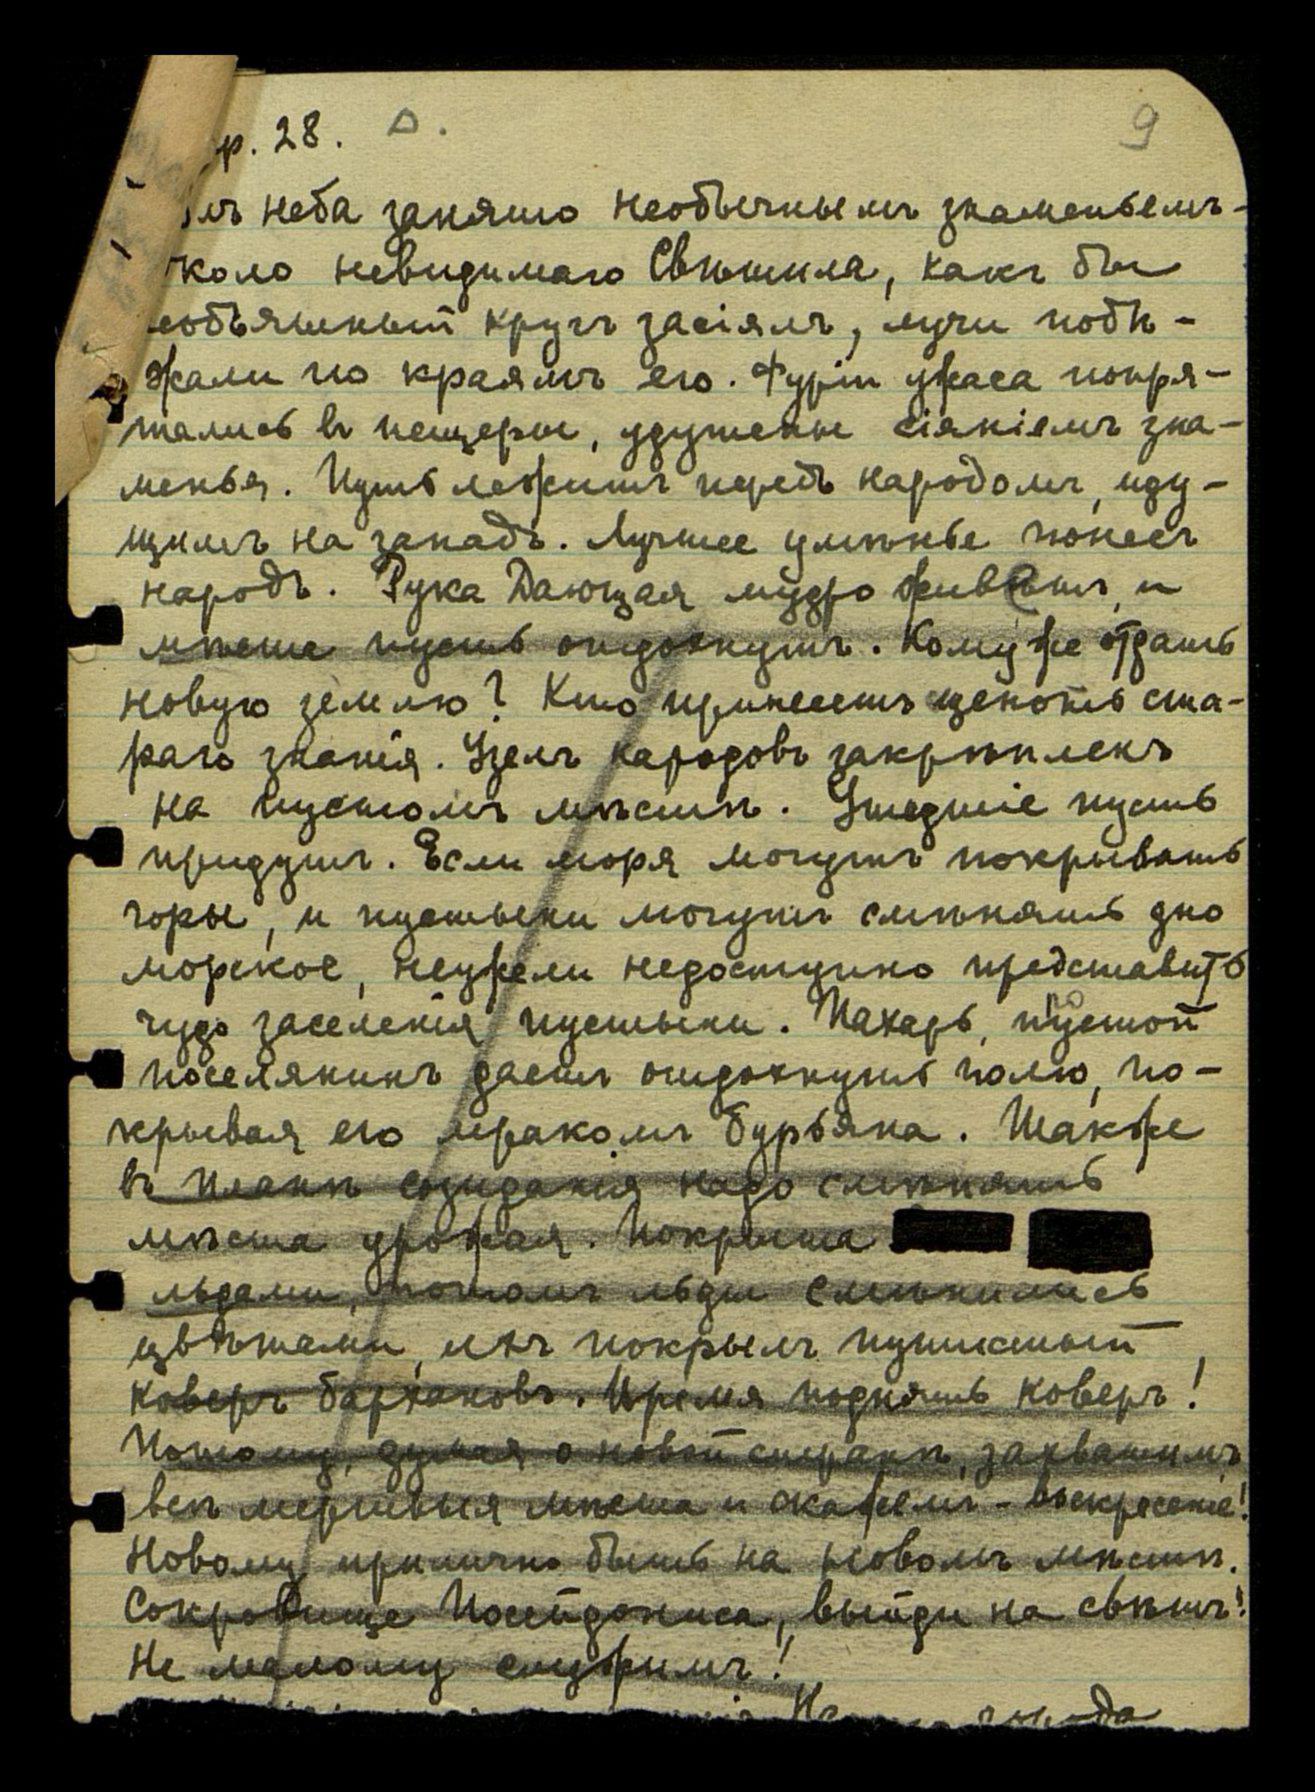 р. 28. Δ.
9
лъ неба занято необычнымъ знаменьемъ-
коло невидимаго Свѣтила, какъ бы
еобъятный кругъ засіялъ, лучи побѣ-
жали по краямъ его. Фуріи ужаса попря-
тались въ пещеры, удушены сіяніемъ зна-
менья. Путь лежитъ передъ народомъ, иду-
щимъ на западъ. Лучшее умѣнье понесъ
народъ. Рука Дающая мудро живетъ, и
мѣста пусть отдохнутъ. Кому же отдать
новую землю? Кто принесетъ щепоть ста-
раго знанія. Узелъ народовъ закрѣпленъ
на пустомъ мѣстѣ. Ушедшіе пусть
придутъ. Если моря могутъ покрывать
горы, и пустыни могутъ смѣнять дно
морское, неужели недоступно представить
чудо заселенія пустыни. Пахарь, простой
поселянинъ даетъ отдохнуть полю, по-
крывая его мракомъ бурьяна. Также
въ планѣ созиданія надо смѣнять
мѣста урожая. Покрыта
льдами, потомъ льды смѣнились
цвѣтами, ихъ покрылъ пушистый
коверъ бархановъ. Время поднять коверъ!
Потому, думая о новой странѣ, захватимъ
всѣ мертвыя мѣста и скажемъ - воскресеніе!
Новому прилично быть на новомъ мѣстѣ.
Сокровище Посейдониса, выйди на свѣтъ!
Не малому служимъ!